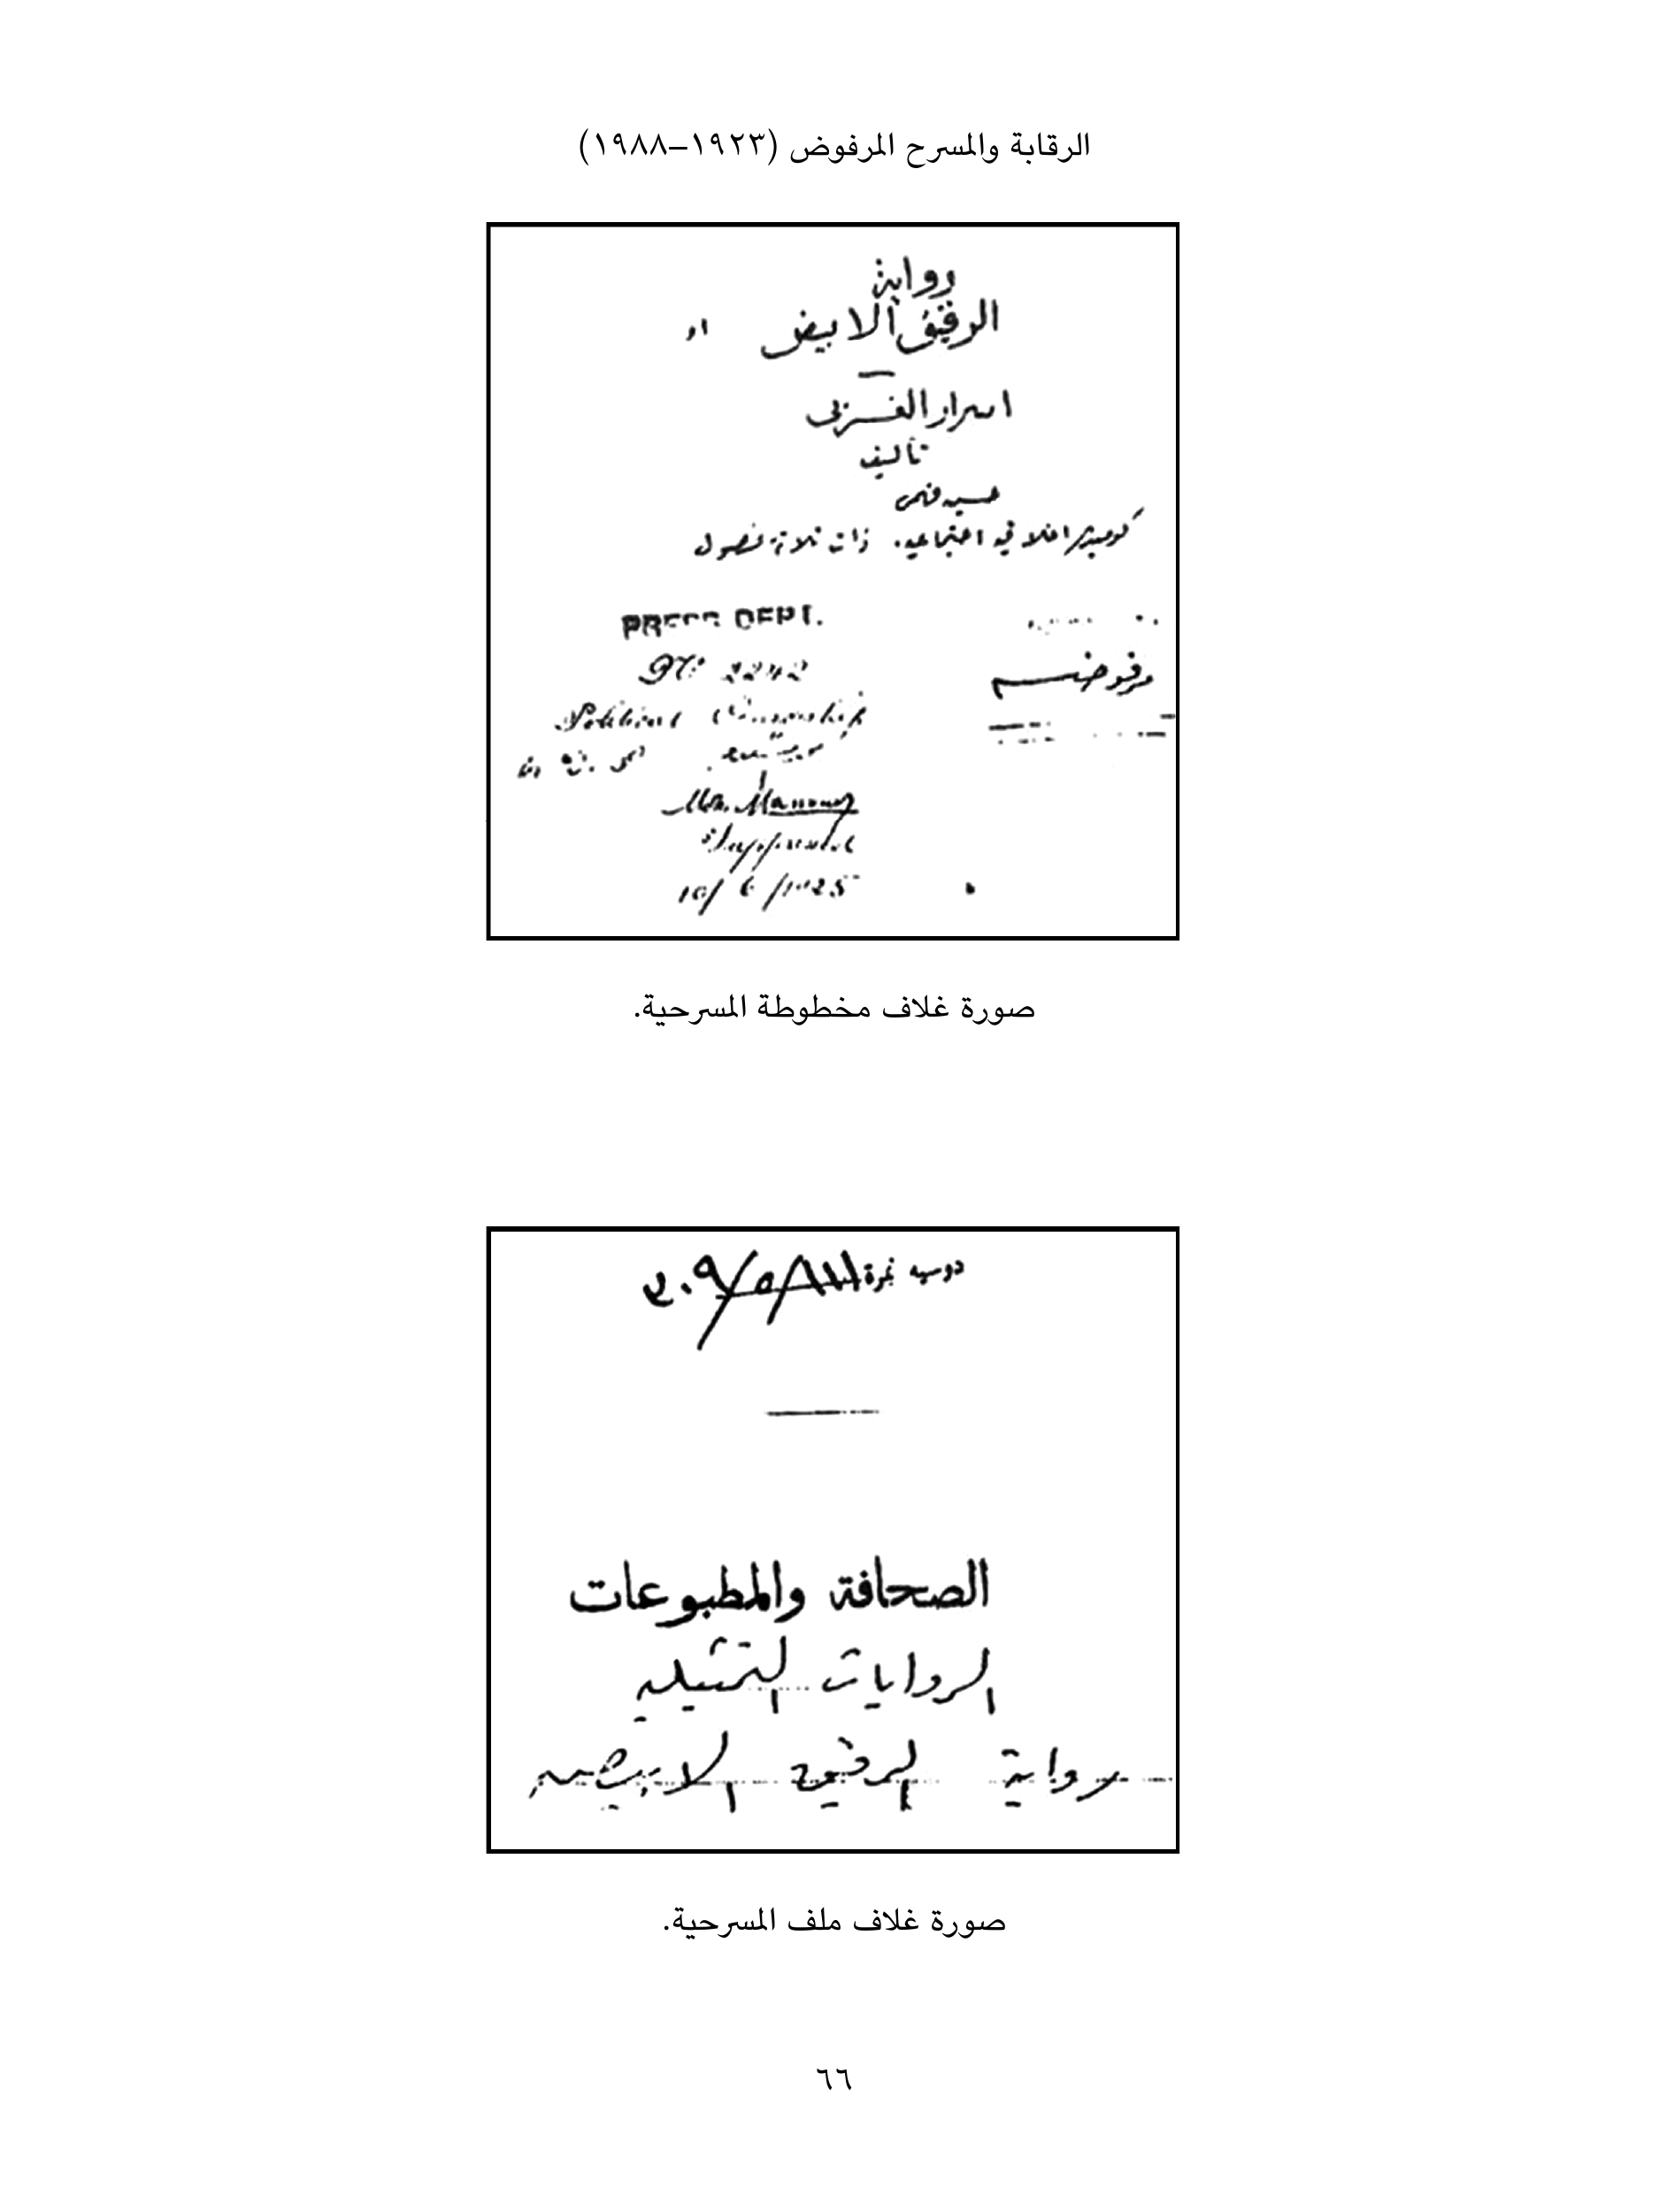 الرقابة والمسرح المرفوض (١٩٢٣–١٩٨٨)
رواية
الرقيق الابيض او
اسرار الغزبى
تأليف
حسين فهمى
كوميدية اخلاقية اجتماعية. ذات ثلاثة فصول
PRESS DEPT.
مرفوضة
2242
Political Censorship
10/6/1925
صورة غلاف مخطوطة المسرحية.
دوسيه نمرة
الصحافة والمطبوعات
الروايات التمثيلية
رواية الرقيق الابيض
صورة غلاف ملف المسرحية.
٦٦